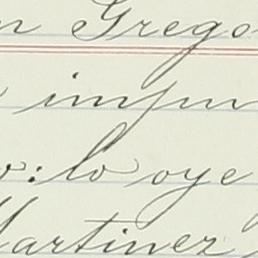 n Grego
impu
o: lo oye
Martinez